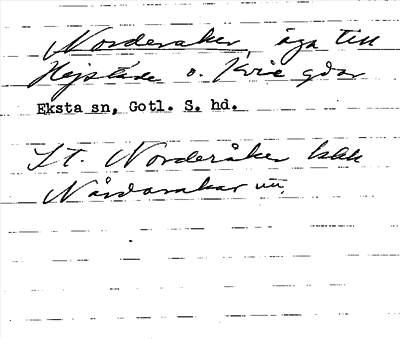 Norderaker, äga till
Hejstäde o. Kvie gdar
Eksta sn, Gotl. S. hd.
St. Norderåker kall
Nårdarakar